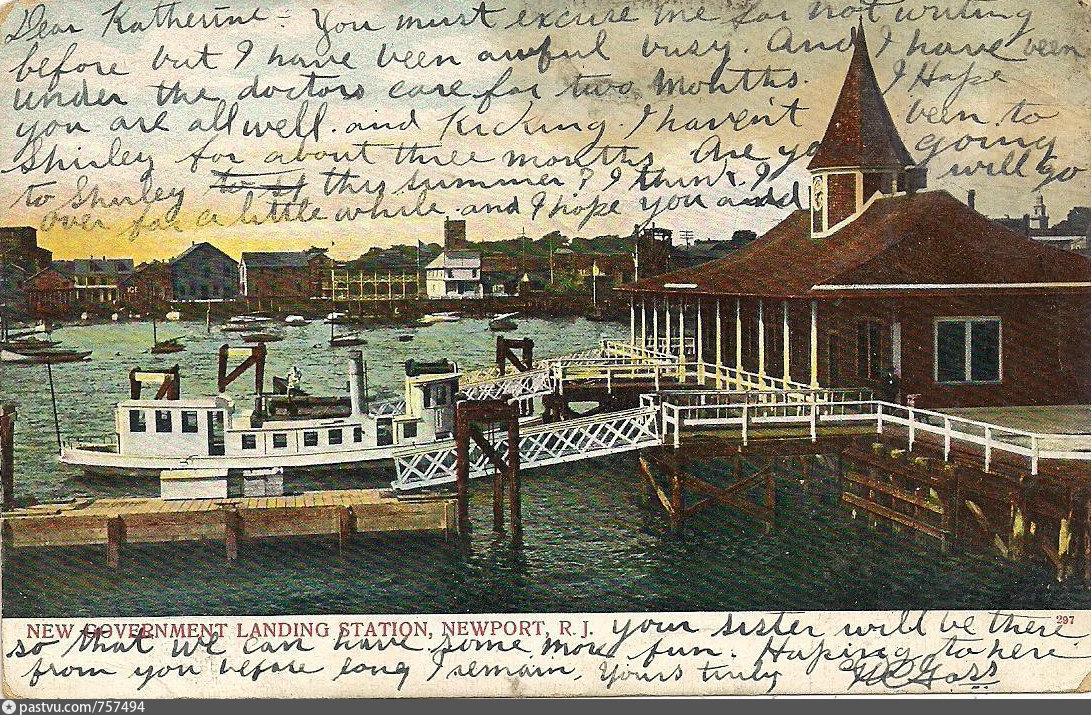 Dear Katherine - You must excuse me for not writing
before but I have been awful busy. And I have been
under the doctors care for two months. I Hope
you are all well. and Kicking. I haven't been to
Shirley for about three months. Are you going
to Shirley this summer? I think I will go
over for a little while. and I hope you and
NEW GOVERNMENT LANDING STATION, NEWPORT, R. J. your sister will be there 297
so that we can have some more fun. Hoping to here
from you before long I remain. Yours truly
pastvu.com/757494